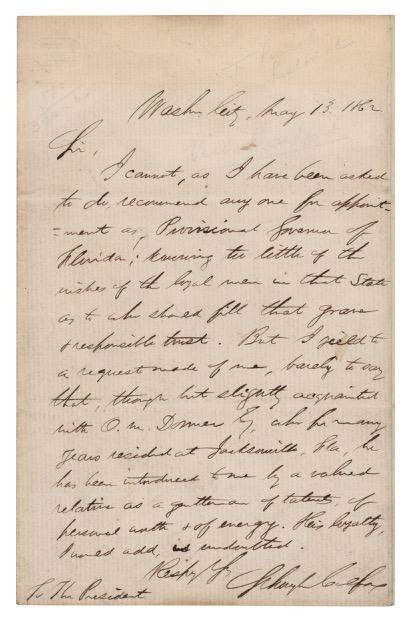 Washn City, May 13. 1862
Sir,
I cannot, as I have been asked
to do, recommend any one for appoint-
=ment as, Provisional Governor of
Florida; knowing too little of the
wishes of the loyal men in that State
as to who should fill that grave
& responsible trust. But I yield to
a request made of me, barely to say
that, though but slightly acquainted
with O. M. Dorman Esq, who for many
years resided at Jacksonville, Fla, he
has been introduced to me by a valued
relative as a gentleman of talent, of
personal worth & of energy. His loyalty,
I need add, is undoubted.
Respy Yrs
Schuyler Colfax
To The President